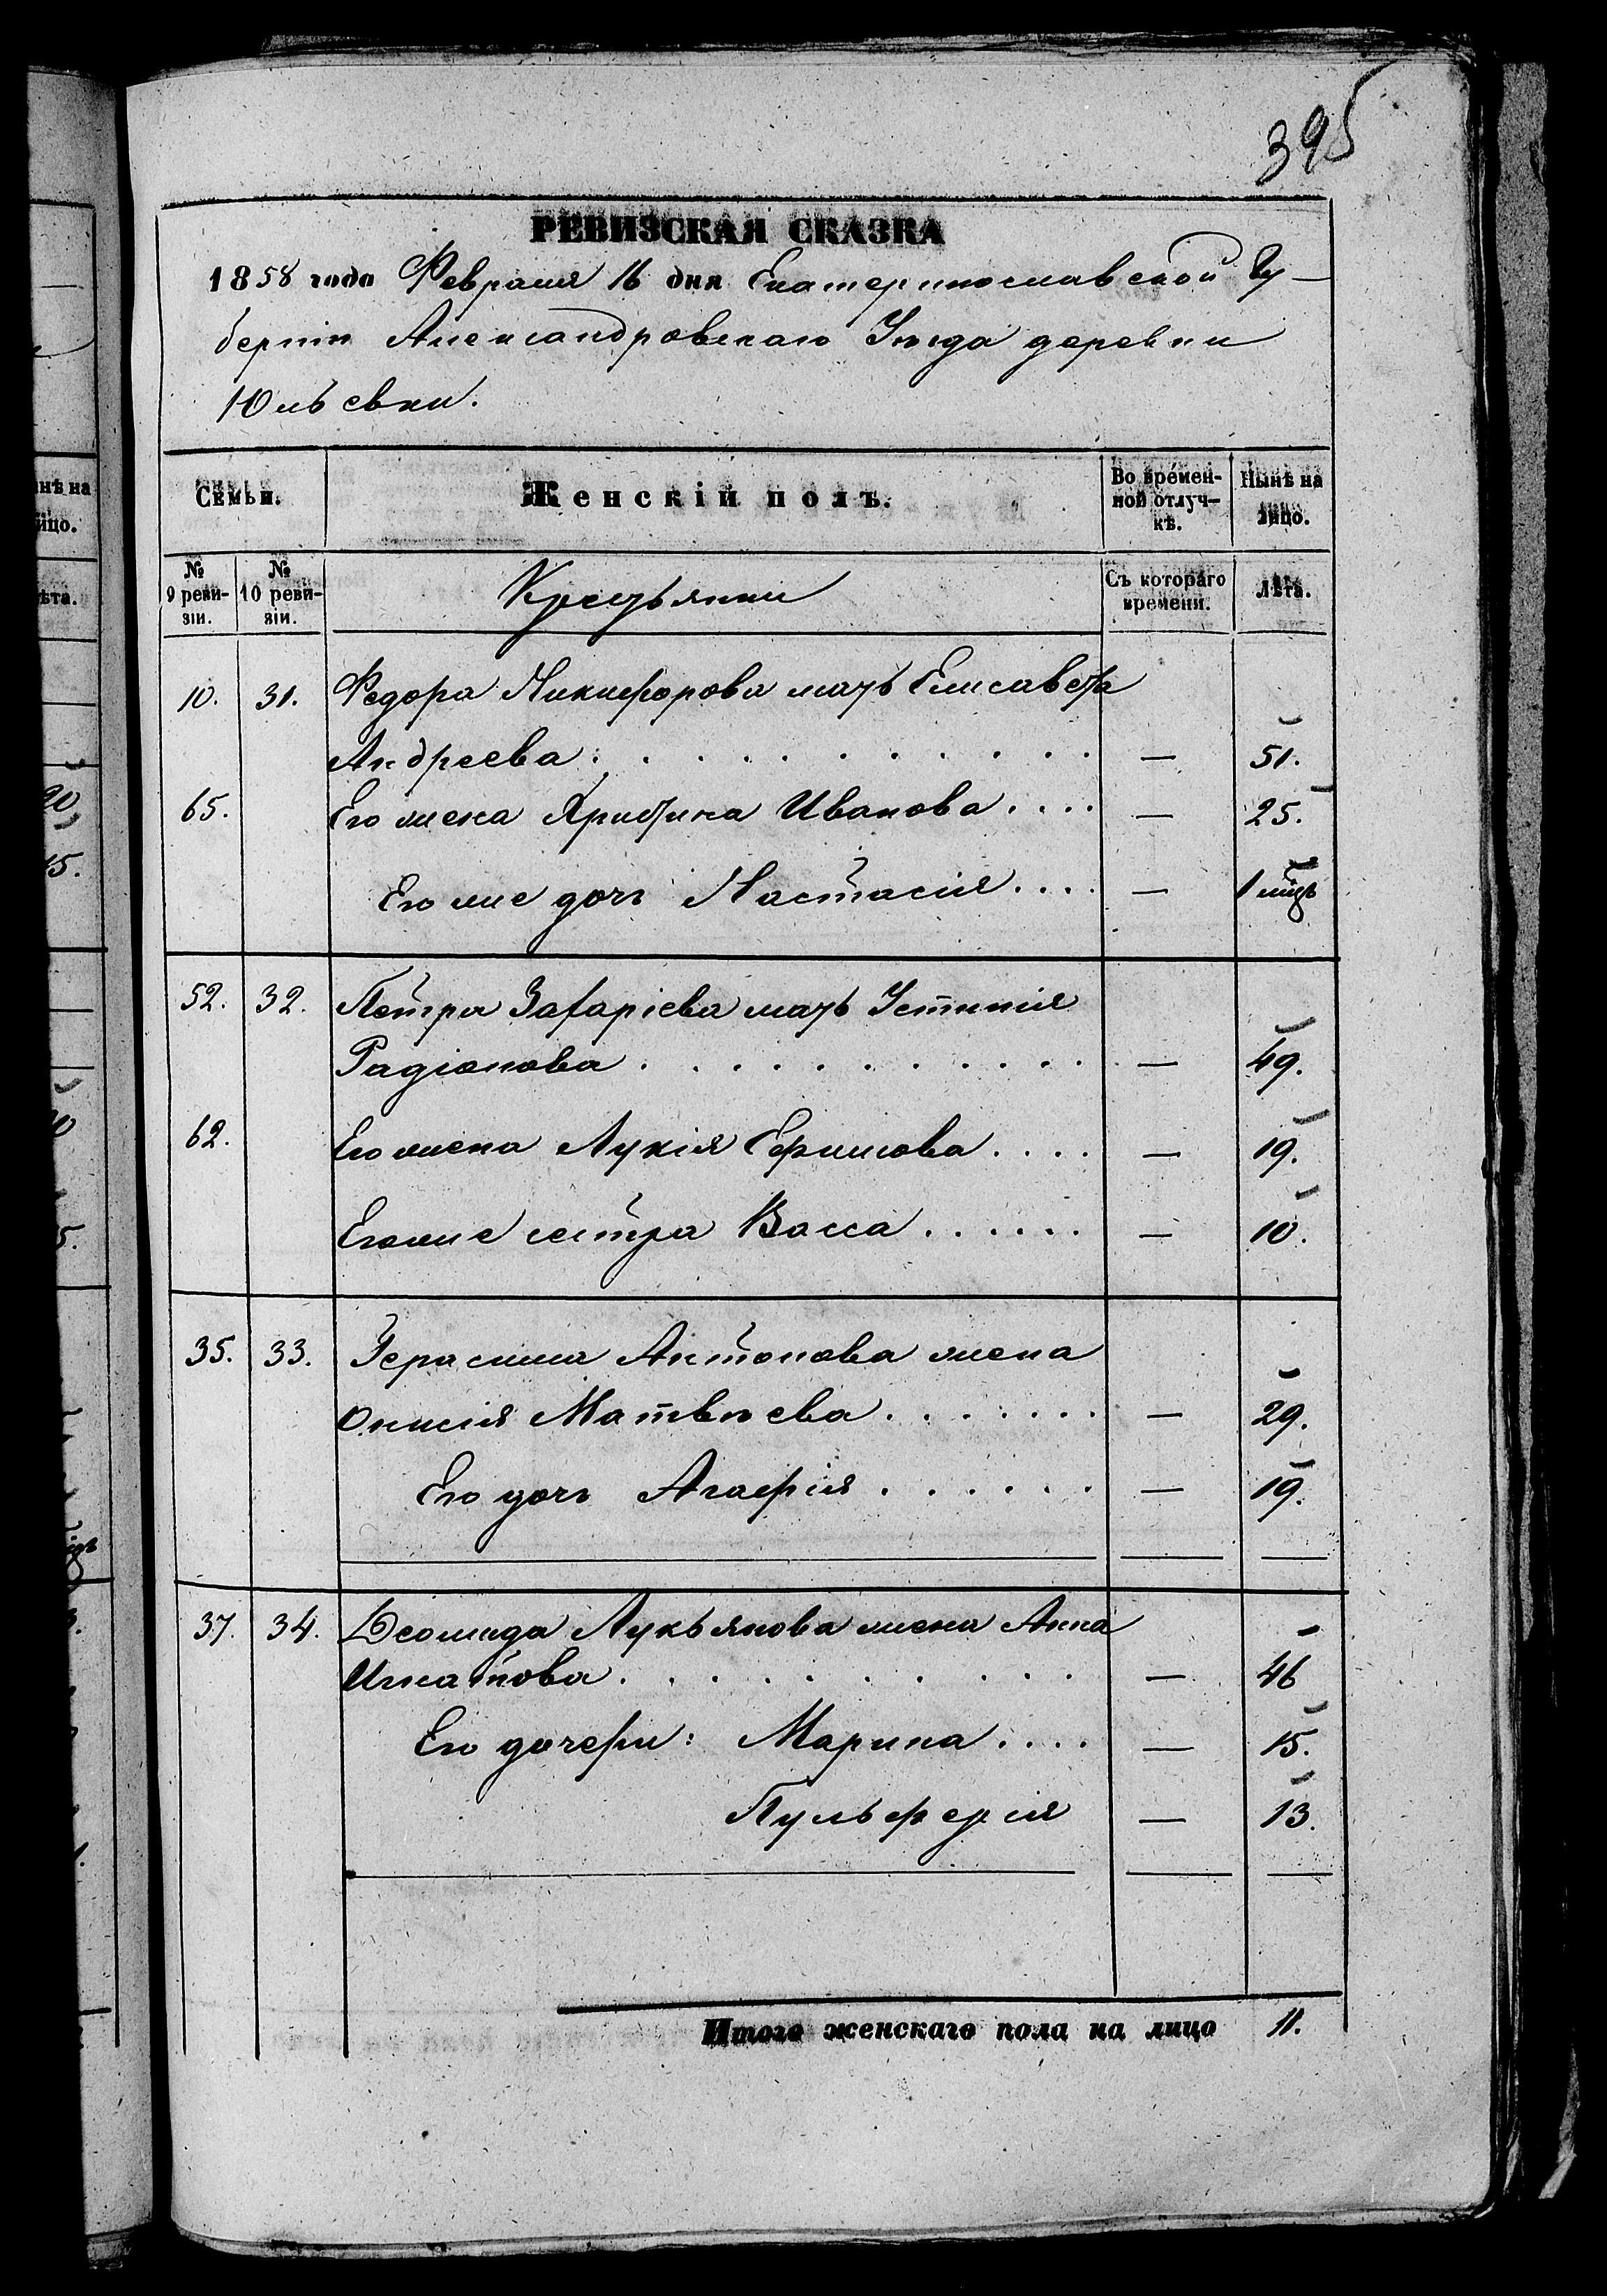 395
РЕВИЗСКАЯ СКАЗКА
1858 года Февраля 16 дня Екатеринославской Гу-
берніи Александровскаго Уѣзда деревни
Юльевки.
Семьи. Женскій полъ. Во времен-ной отлуч-кѣ. Нынѣ на лицо.
№ 9 реви-зіи. № 10 реви-зіи. Крестьянки Съ котораго времени. Лѣта.
10. 31. Федора Никифорова мать Елисавета
Андреева . . . . . . . . . . . — 51.
65. Его жена Христина Иванова . . . . — 25.
Его же дочь Настасія . . . . — 1 мѣцъ
52. 32. Петра Захаріева мать Устинія
Радіонова . . . . . . . . . . . — 49.
62. Его жена Лукія Ефимова . . . . — 19.
Его же сестра Васса . . . . . . — 10.
35. 33. Герасима Антонова жена
Онисія Матвѣева . . . . . . . — 29.
Его дочь Агафія . . . . . . — 19.
37. 34. Деомида Лукьянова жена Анна
Игнатова . . . . . . . . . . — 46
Его дочери: Марина . . . . — 15.
Пульферія — 13.
Итого женскаго пола на лицо 11.
нѣ на
ицо.
ѣта.
20
15.